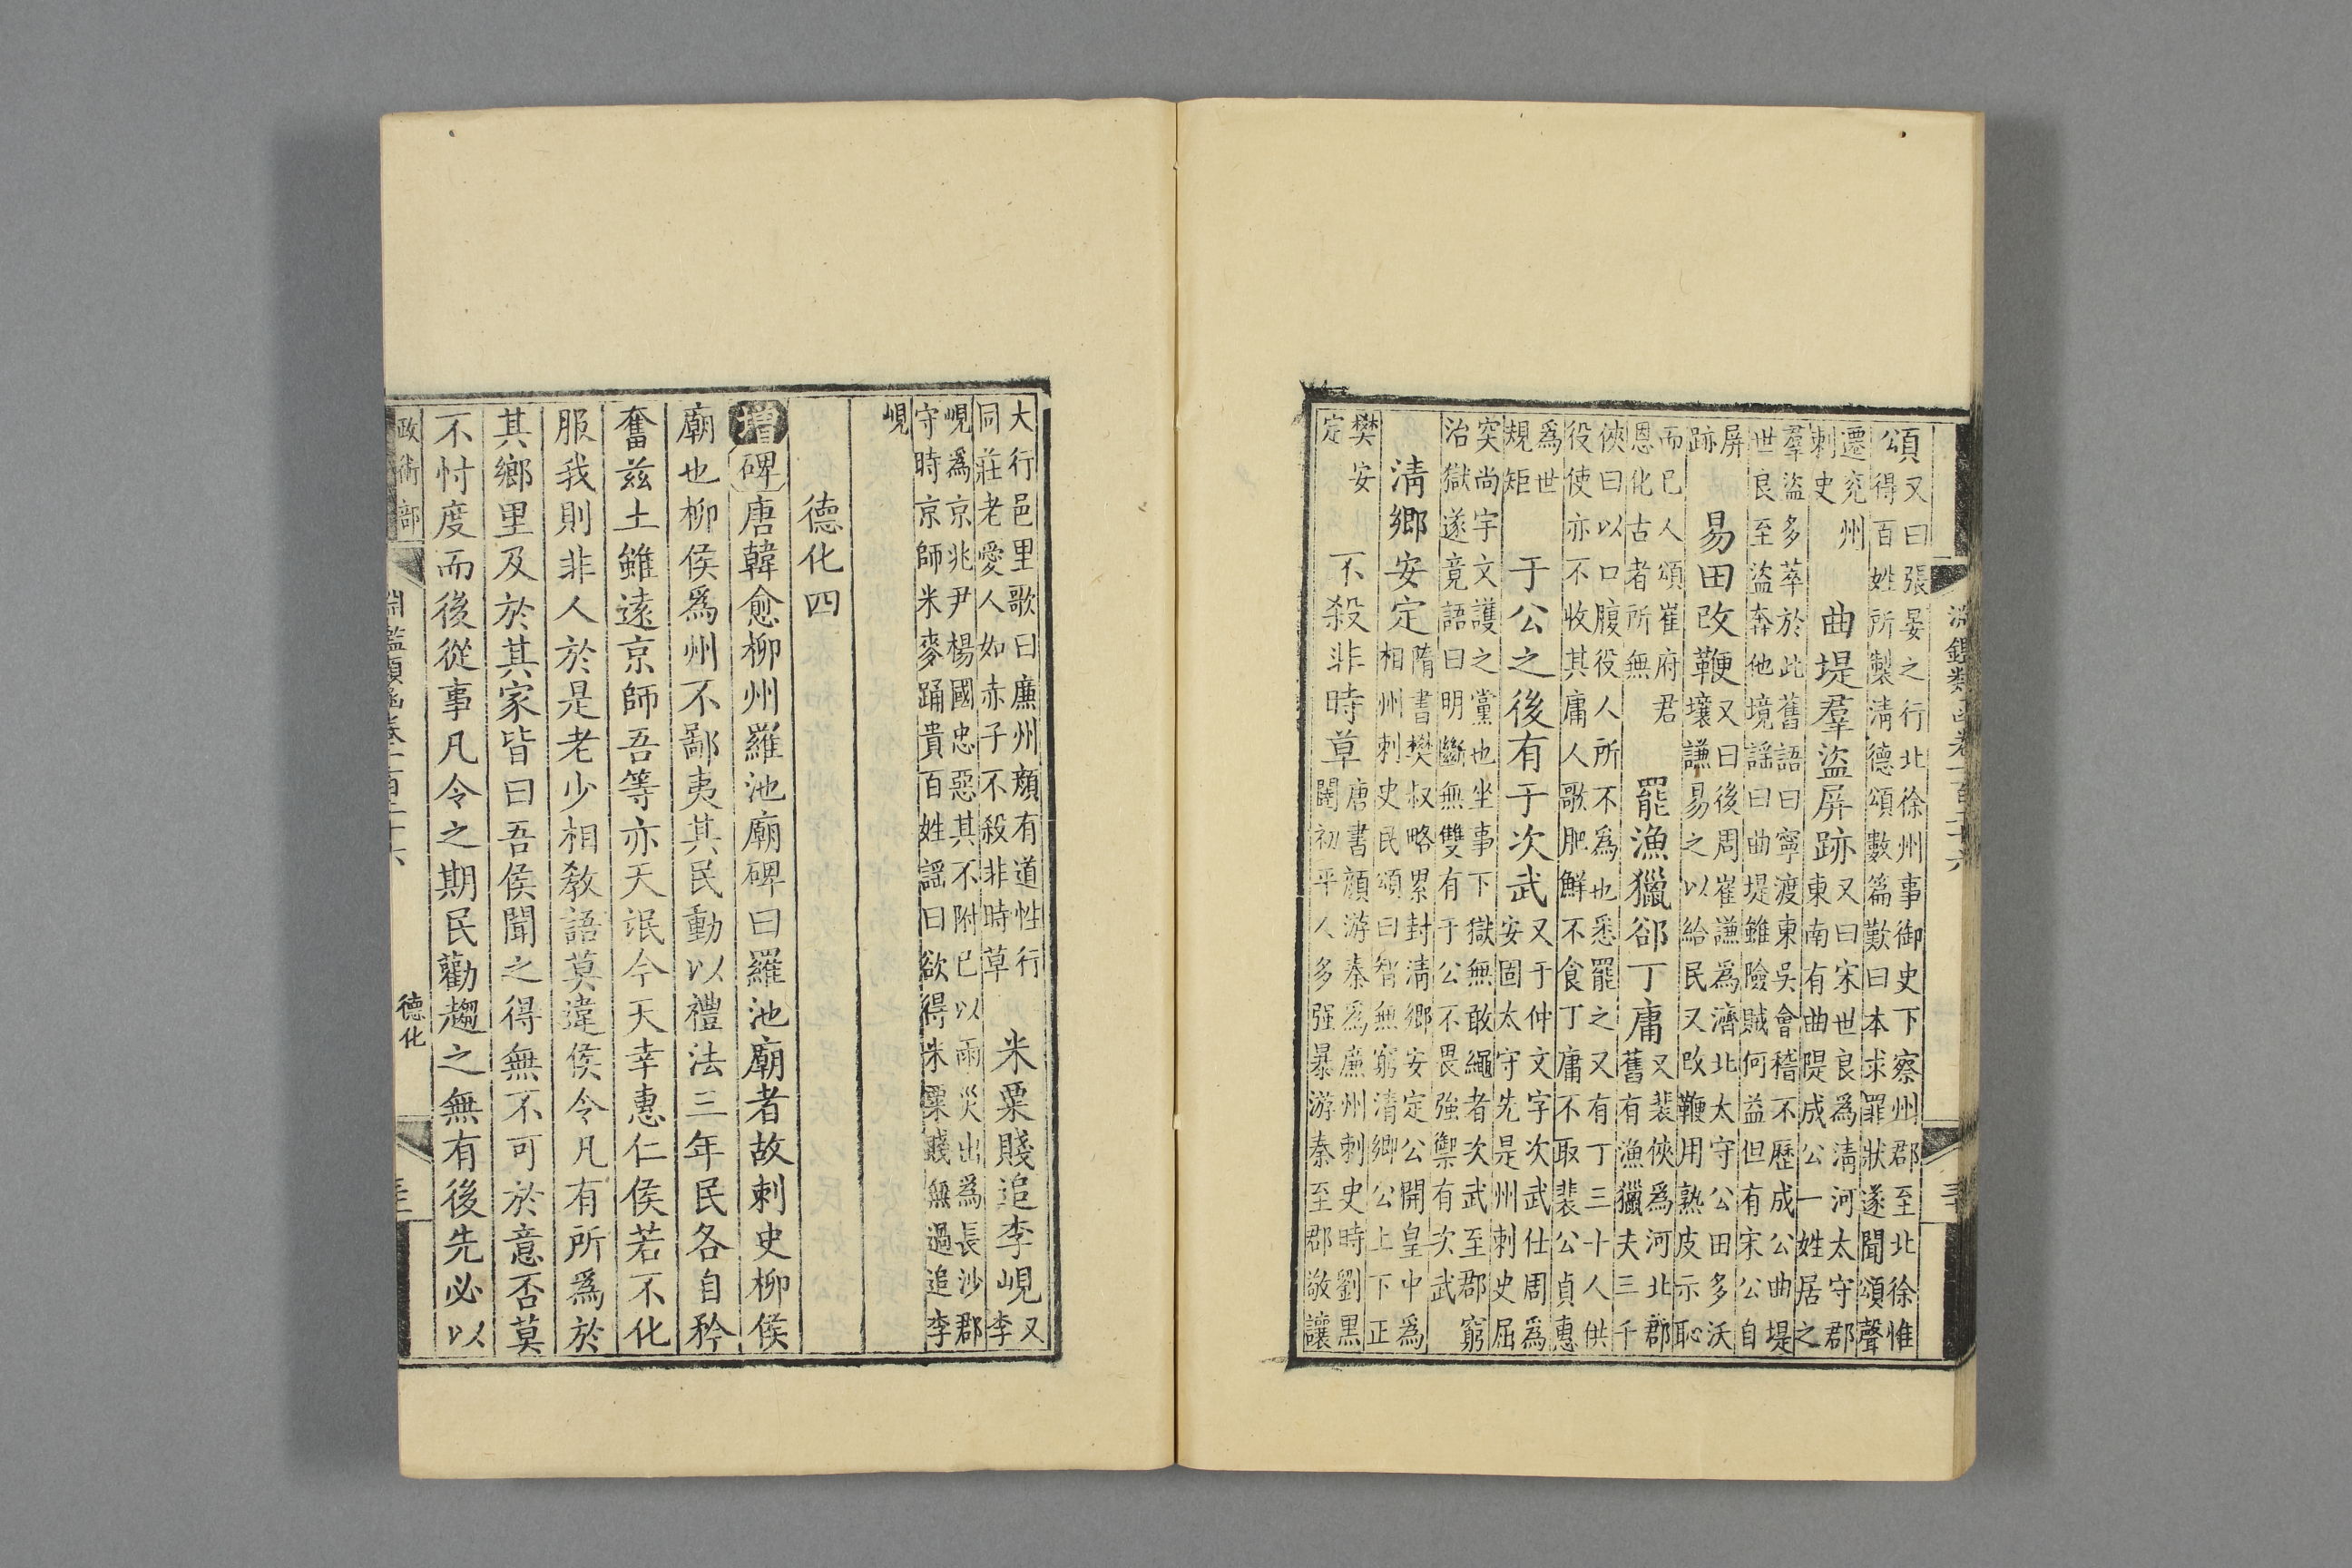 淵鑑類函卷一百二十六 三十
頌 又曰張晏之行北徐州事御史下察州郡至北徐惟
得百姓所製清德頌數篇歎曰本求罪狀遂聞頌聲
遷兖州
刺史
曲堤羣盜屏跡
又曰宋世良爲清河太守郡
東南有曲隄成公一姓居之
羣盜多萃於此舊語曰寧渡東吳會稽不歷成公曲堤
世良至盜奔他境謡曰曲堤雖險賊何益但有宋公自
屏
跡
易田改鞭
又曰後周崔謙爲濟北太守公田多沃
壤謙易之以給民又改鞭用熟皮示恥
而已人頌崔府君
恩化古者所無
罷漁獵郤丁庸
又裴俠爲河北郡
舊有漁獵夫三千
俠曰以口腹役人所不爲也悉罷之又有丁三十人供
役使亦不收其庸人歌肥鮮不食丁庸不取裴公貞惠
爲世
規矩
于公之後有于次武
又于仲文字次武仕周爲
安固太守先是州刺史屈
突尚宇文護之黨也坐事下獄無敢繩者次武至郡窮
治獄遂竟語曰明斷無雙有于公不畏強禦有次武
清鄉安定
隋書樊叔略累封清鄉安定公開皇中爲
相州刺史民頌曰智無窮清卿公上下正
樊安
定
不殺非時草
唐書顔游秦爲廉州刺史時劉黑
闥初平人多强暴游秦至郡敬讓
大行邑里歌曰廉州顔有道性行
同莊老愛人如赤子不殺非時草
米粟賤追李峴
又
李
峴爲京兆尹楊國忠惡其不附已以雨災出爲長沙郡
守時京師米麥踊貴百姓謡曰欲得米粟賤無過追李
峴
德化四
增碑唐韓愈柳州羅池廟碑曰羅池廟者故刺史柳侯
廟也柳侯爲州不鄙夷其民動以禮法三年民各自矜
奮兹土雖遠京師吾等亦天氓今天幸惠仁侯若不化
服我則非人於是老少相教語莫違侯令凡有所爲於
其鄉里及於其家皆曰吾侯聞之得無不可於意否莫
不忖度而後從事凡令之期民勸趨之無有後先必以
政術部 淵鑑類函卷一百二十六 德化